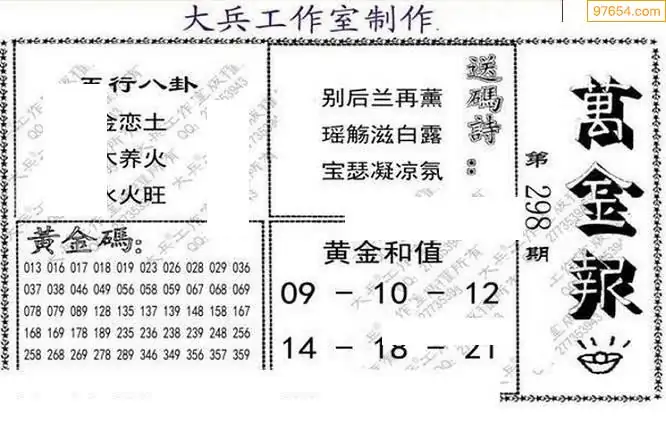 大兵工作室制作.
97654.com
五行八卦
金恋土
木养火
水火旺
送碼詩：
别后兰再薰
瑶觞滋白露
宝瑟凝凉氛
萬金報
第298期
黄金碼：
013 016 017 018 019 023 026 028 029 036
037 038 046 049 056 057 059 067 068 069
078 079 089 128 135 137 139 148 158 167
168 169 178 189 235 236 238 239 248 256
258 268 269 278 289 346 349 356 357 359
黄金和值
09 － 10 － 12
14 － 18 － 21